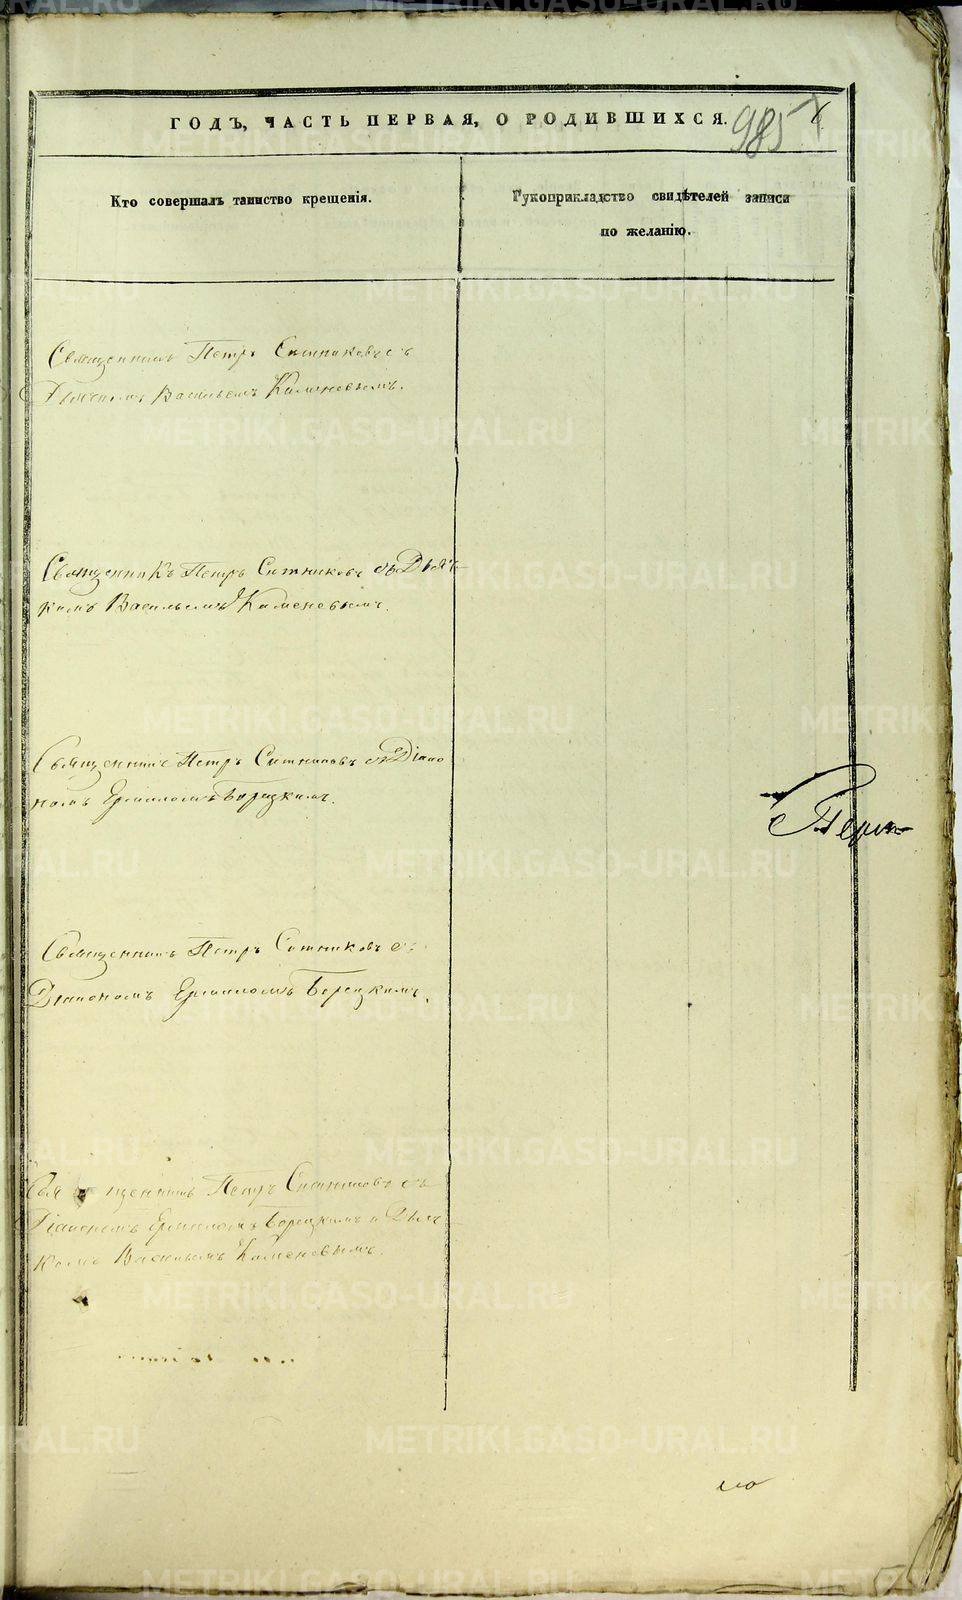 ГОДЪ, ЧАСТЬ ПЕРВАЯ, О РОДИВШИХСЯ.
985
Кто совершалъ таинство крещенія.
Рукоприкладство свидѣтелей записи
по желанію.
Священникъ Петръ Ситниковъ съ
Дьячкомъ Васильемъ Каменевымъ.
Священникъ Петръ Ситниковъ съ Дьяч-
комъ Васильемъ Каменевымъ.
Священникъ Петръ Ситниковъ съ Діако
номъ Ермиломъ Борецкимъ.
Священникъ Петръ Ситниковъ съ
Діакономъ Ермиломъ Борецкимъ.
Священникъ Петръ Ситниковъ съ
Діакономъ Ермиломъ Борецкимъ и Дьяч
комъ Васильемъ Каменевымъ.
METRIKI.GASO-URAL.RU